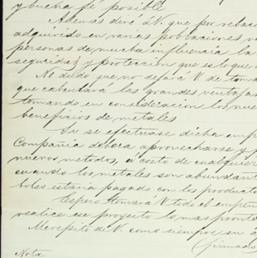 y buena fe posible
Además diré á V. que por relac
adquirido en varias poblaciones
personas de mucha influencia la
seguridad y protección que es lo que
No dudo que no dejará V. de toma
que cabentará las grandes ventaja
tomando en consideración los nue
beneficios de metales
Si se efectuase dicha emp
Compañía deberá aprovecharse y
nuevos metodos, á costo de cualquier
cuando los metales son abundant
boles estaria pagado con los producto
Espero tomará V. todo el empeñ
realice ese proyecto lo mas pronto
Me repito de V. como siempre su a
(firmado
Nota